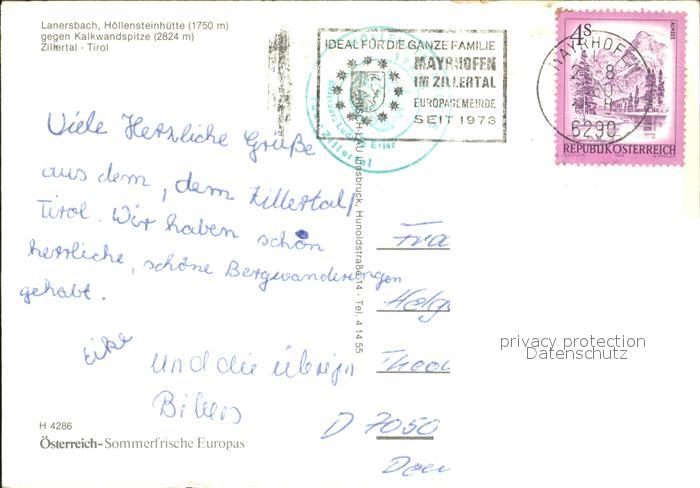 Lanersbach, Höllensteinhütte (1750 m)
gegen Kalkwandspitze (2824 m)
Zillertal - Tirol
IDEAL FÜR DIE GANZE FAMILIE
MAYRHOFEN
IM ZILLERTAL
EUROPAGEMEINDE
SEIT 1973
MAYRHOFEN
6290
4S
REPUBLIK ÖSTERREICH
Erler
Zillertal
Viele Herzliche Grüße
aus dem, dem Zillertal/
Tirol. Wir haben schön
herrliche, schöne Bergwanderungen
gehabt.
Eike
und die übrigen
Innsbruck, Hunoldstraße 14 - Tel. 4 14 55
Fra
Holg
Theod
D 7050
privacy protection
Datenschutz
H 4286
Österreich-Sommerfrische Europas